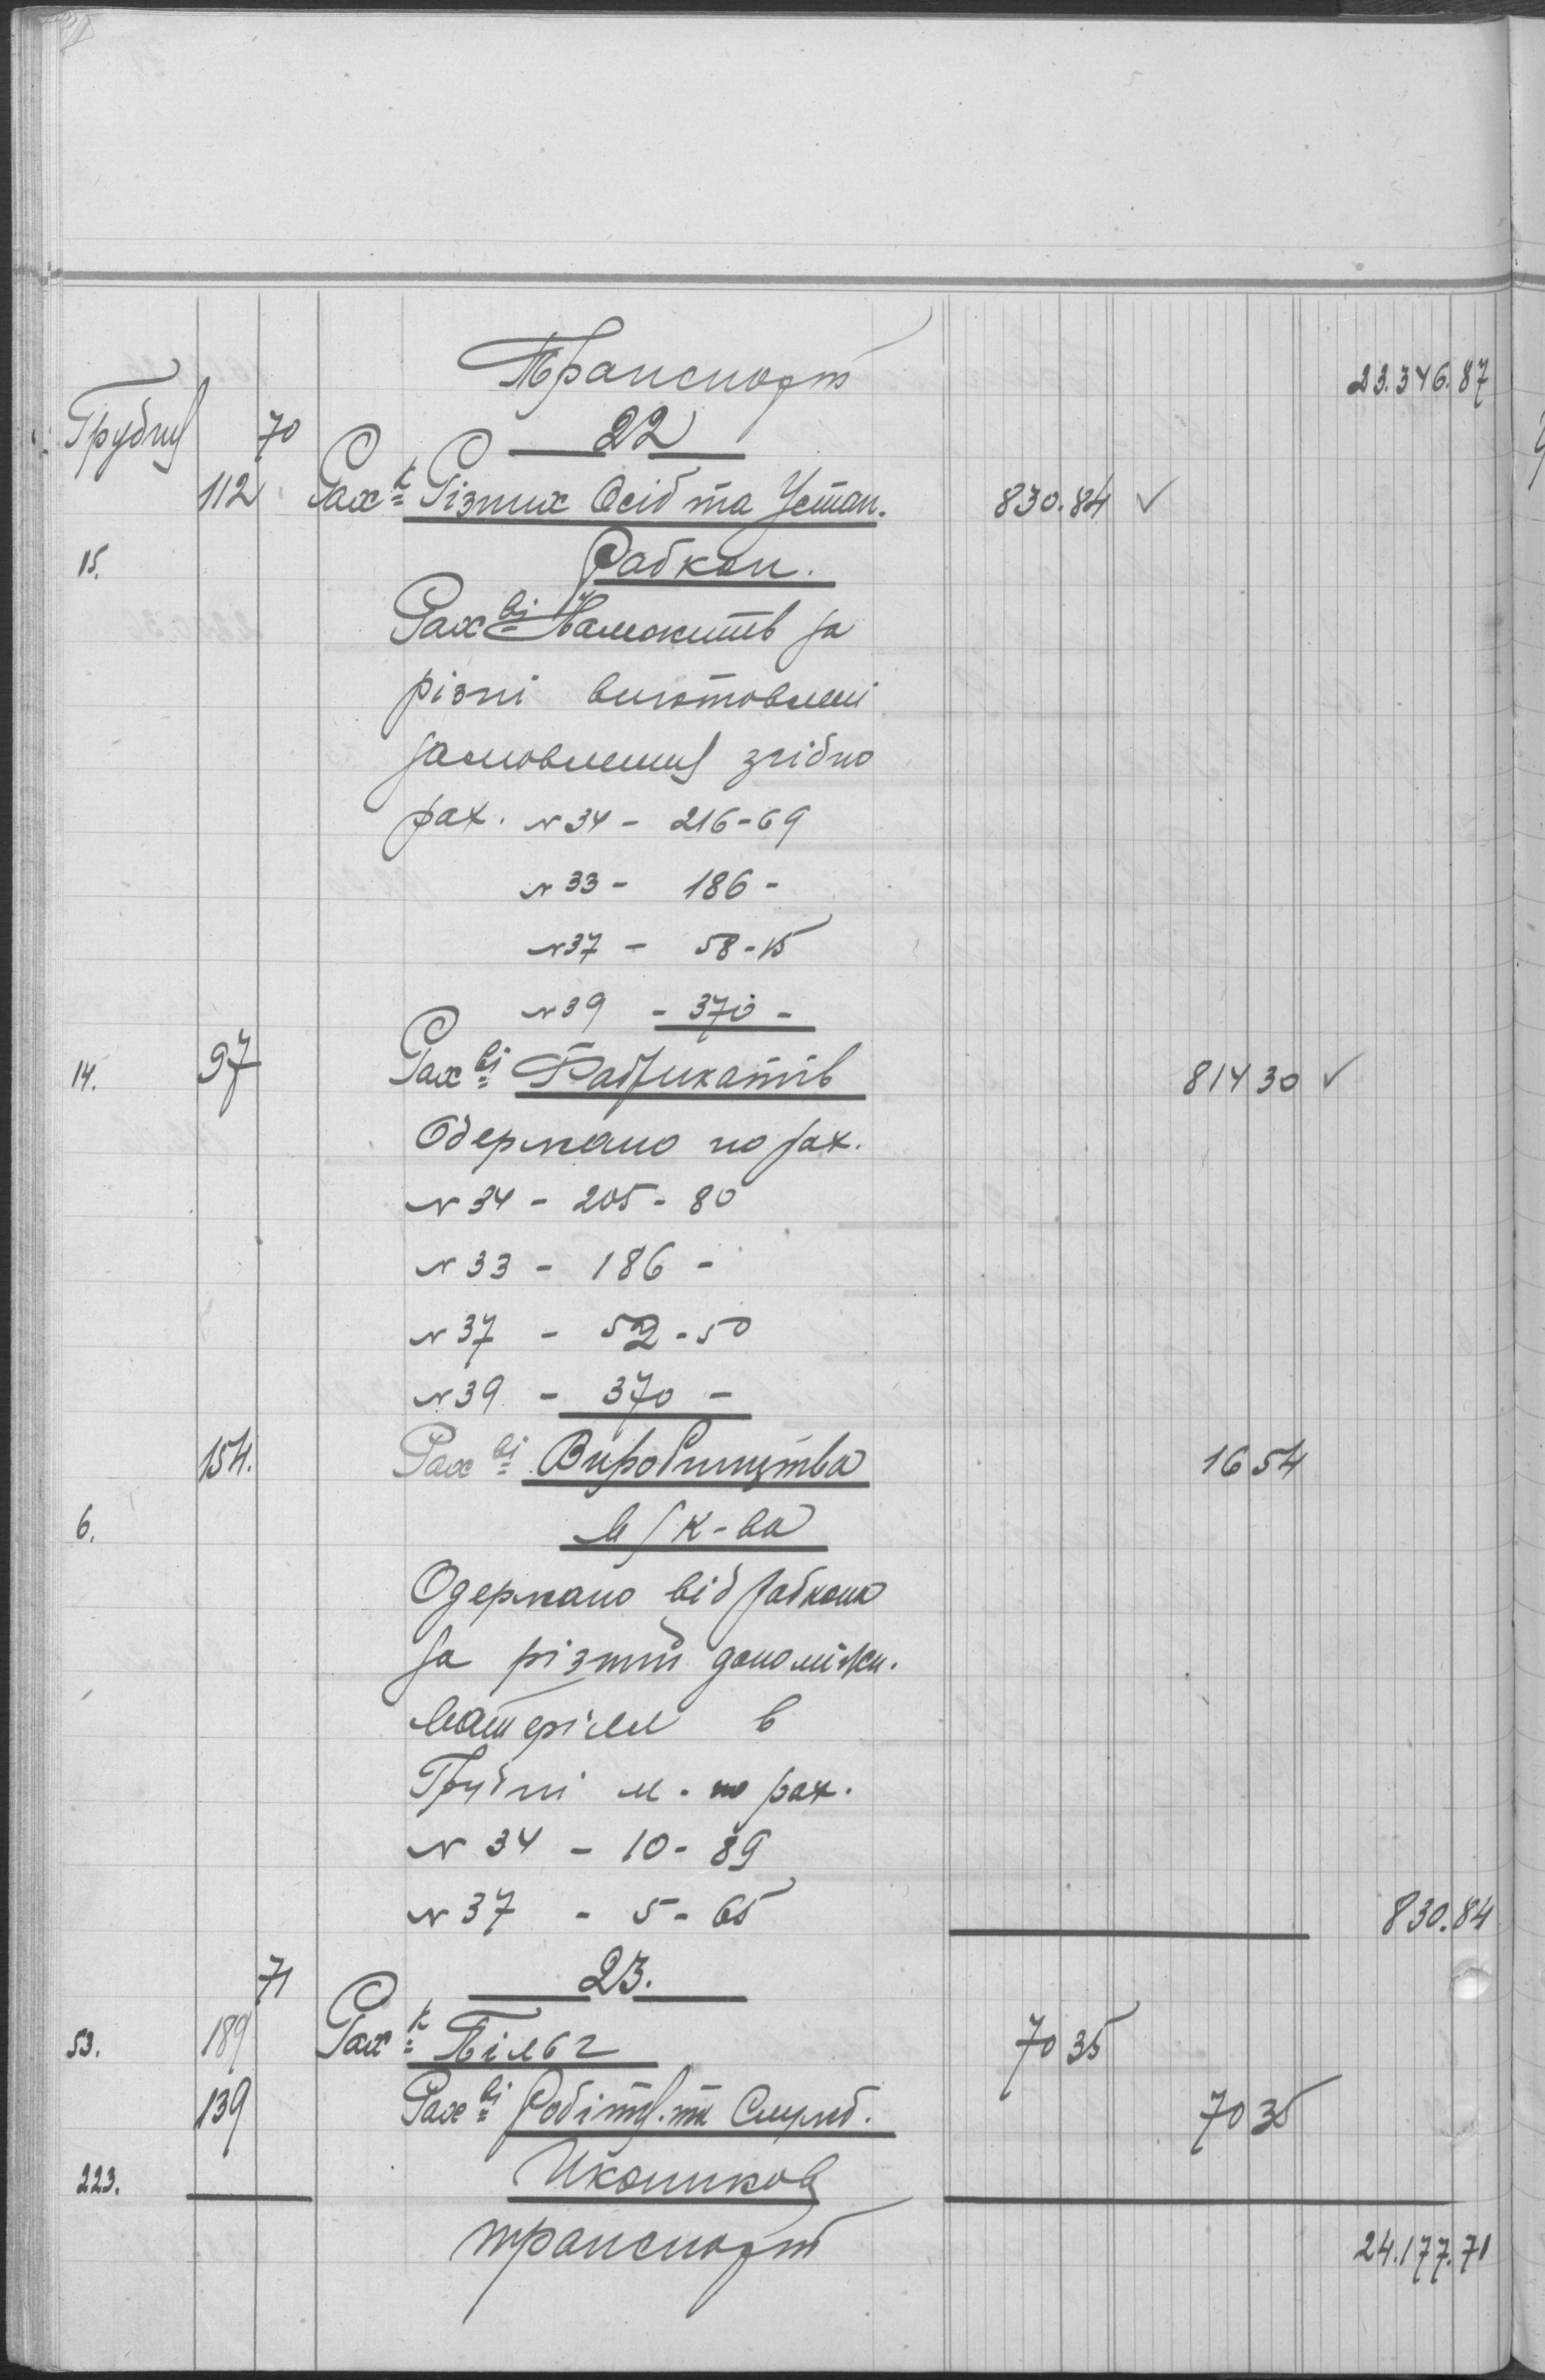 Транспорт 23.346.87
Грудня 70 22
112 Рах-к Різних Осіб та Устан. 830.84 ✓
15. Рабкоп.
Рах-ві Належить за
різні виготовлені
замовлення згідно
рах. № 34 - 216-69
№ 33 - 186 -
№ 37 - 58-15
№ 39 - 370 -
14. 97 Рах-ві Фабрикатів 814 30 ✓
Одержано по рах.
№ 34 - 205-80
№ 33 - 186 -
№ 37 - 52-50
№ 39 - 370 -
154. Рах-ві Виробництва 16 54
6. к-ва
Одержано від Рабкопа
за різний допоміжн.
матеріял в
Грудні м. по рах.
№ 34 - 10-89
№ 37 - 5-65 830.84
71 23.
53. 189 Рах-к Пільг 70 35
139 Рах-ві Робітн. та Служб. 70 35
223. Иконников
транспорт 24.177.71